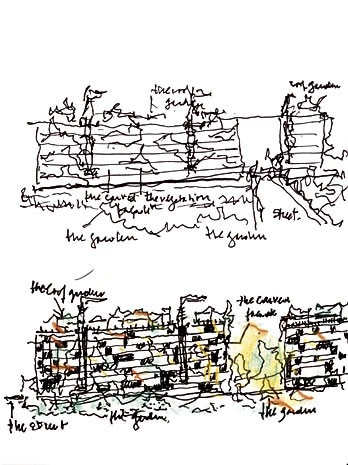 the roof
garden
roof garden
the vegetation
facade
the garden
the garden
street
the roof garden
the
facade
the street
the garden
the garden